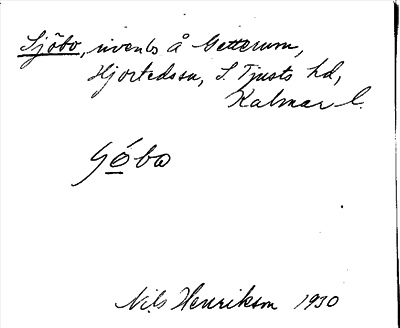 Sjöbo, även ls å Getterum,
Hjortedssn, S Tjusts hd,
Kalmar l.
Nils Henrikson 1930